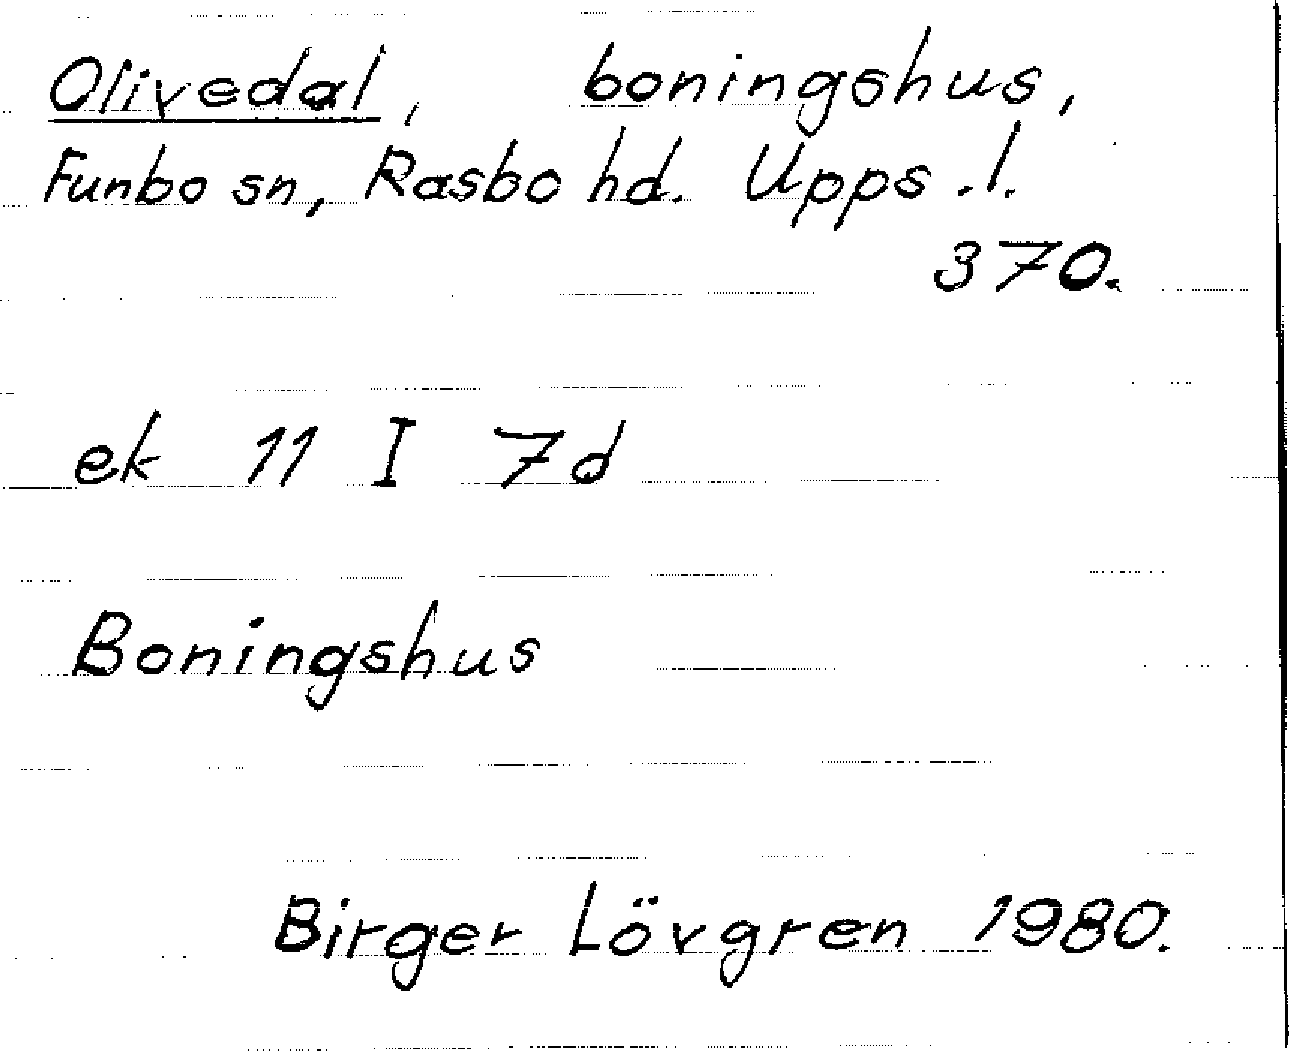 Olivedal, boningshus,
Funbo sn, Rasbo hd. Upps.l.
370.
ek 11 I 7d
Boningshus
Birger Lövgren 1980.